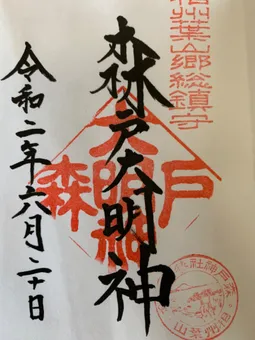 相州葉山郷総鎮守
森戸大明神
森戸大明神
令和二年六月二十日